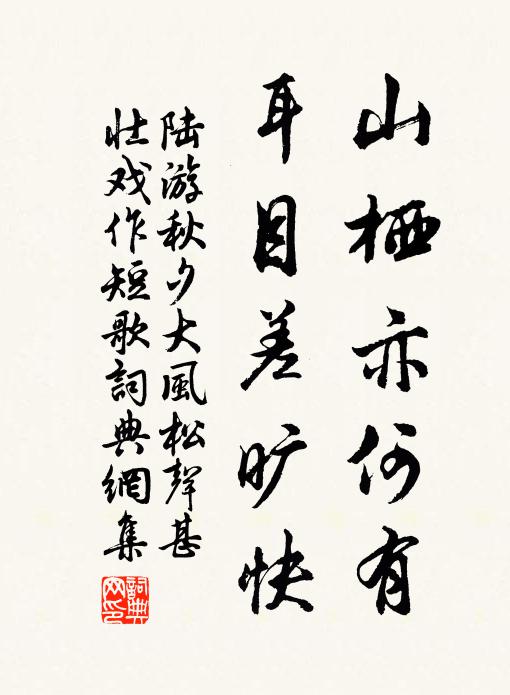 山栖亦何有
耳目差旷快
陆游秋夕大風松聲甚
壮戏作短歌詞典網集
詞典
网印